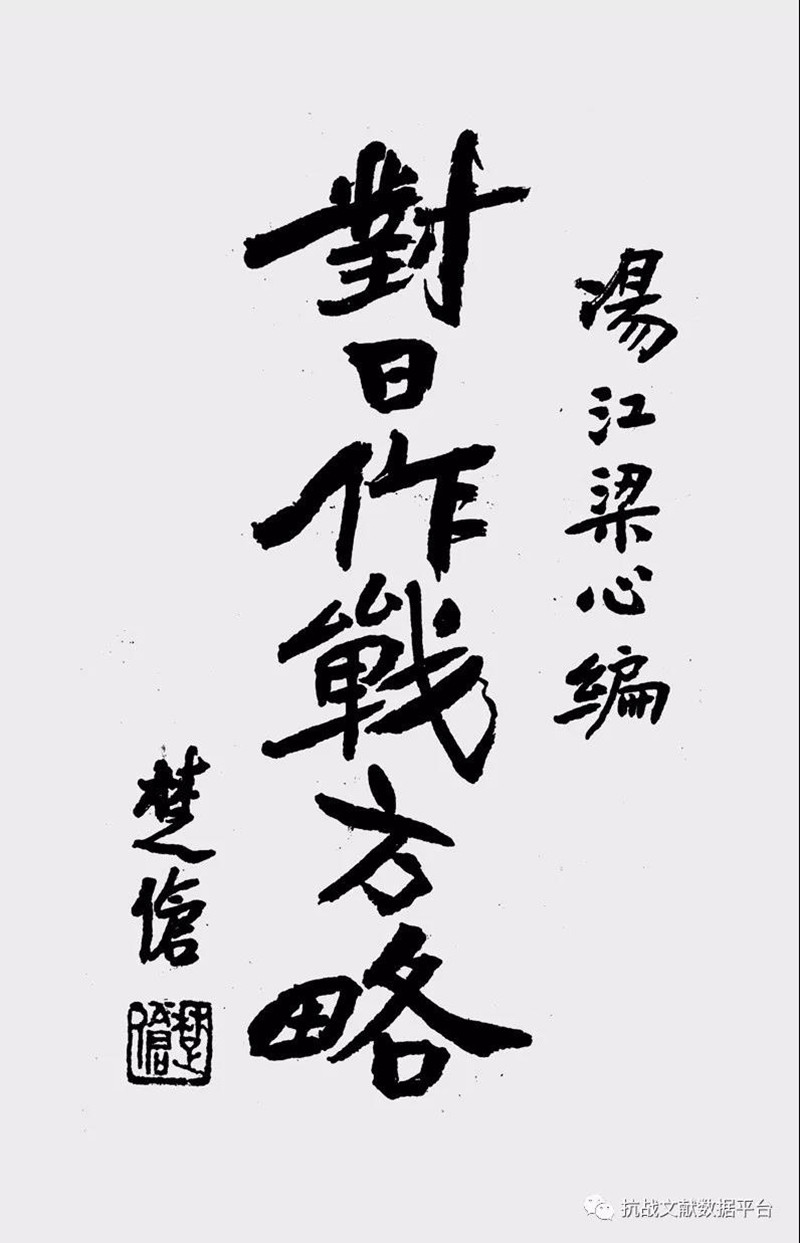 湯江梁心編
對日作戰方略
楚傖
楚傖
抗战文献数据平台